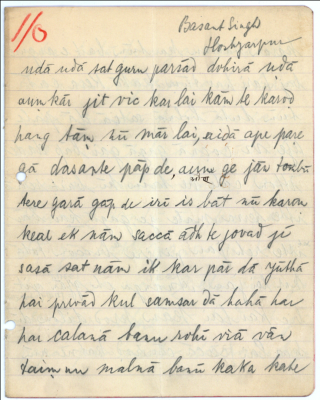 1/6
Basant Singh
Hoshyarpur
uḍā uḍā satguru parsād dohirā uḍā
auṃkār jit vic kar lāi kām te karod
hang tāṃ nū mār lai, aiḍā ape pare
gā dasante pāp de, aunge jān
tere garā gap de īrī is bāt nū karan
keal ek nām saccā ādh te jovad jē
sasā sat nām ik kar pār dā jūthā
hai privād kul samsar dā hahā har
har calanā banu rohī viā vān
taiṃ nu malnā banū kaka kahe